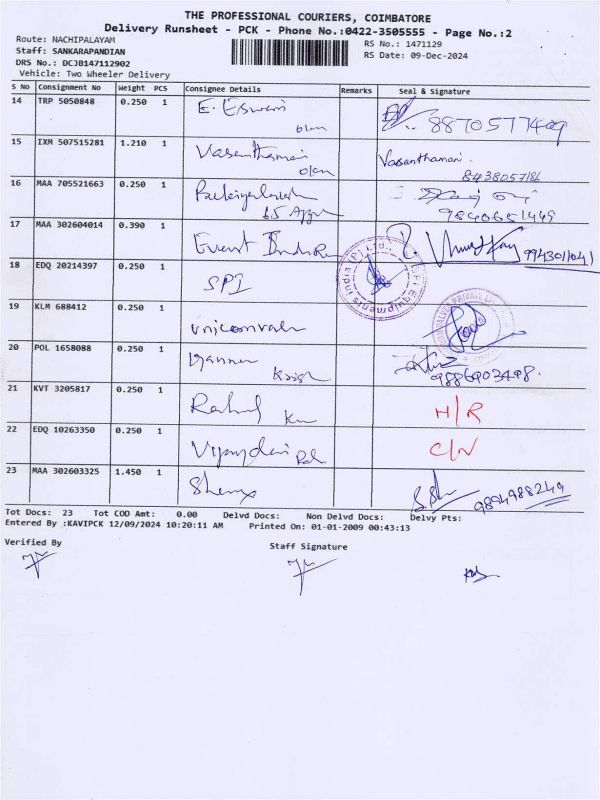 THE PROFESSIONAL COURIERS, COIMBATORE
Delivery Runsheet - PCK - Phone No.:0422-3505555 - Page No.:2
Route: NACHIPALAYAM
RS No.: 1471129
Staff: SANKARAPANDIAN
RS Date: 09-Dec-2024
DRS No.: DCJB147112902
Vehicle: Two Wheeler Delivery
S No Consignment No Weight PCS Consignee Details Remarks Seal & Signature
14 TRP 5050848 0.250 1 E. Eswari 8870577409
15 IXM 507515281 1.210 1 Vasanthamani Vasanthamani.
8438057186
16 MAA 705521663 0.250 1
9840651449
17 MAA 302604014 0.390 1 Event 9943011041
18 EDQ 20214397 0.250 1 SPI
19 KLM 688412 0.250 1 unicorn valve
20 POL 1658088 0.250 1
9886903498.
21 KVT 3205817 0.250 1 Rahul H/R
22 EDQ 10263350 0.250 1 C/N
23 MAA 302603325 1.450 1 9894988249
Tot Docs: 23 Tot COD Amt: 0.00 Delvd Docs: Non Delvd Docs: Delvy Pts:
Entered By :KAVIPCK 12/09/2024 10:20:11 AM Printed On: 01-01-2009 00:43:13
Verified By
Staff Signature